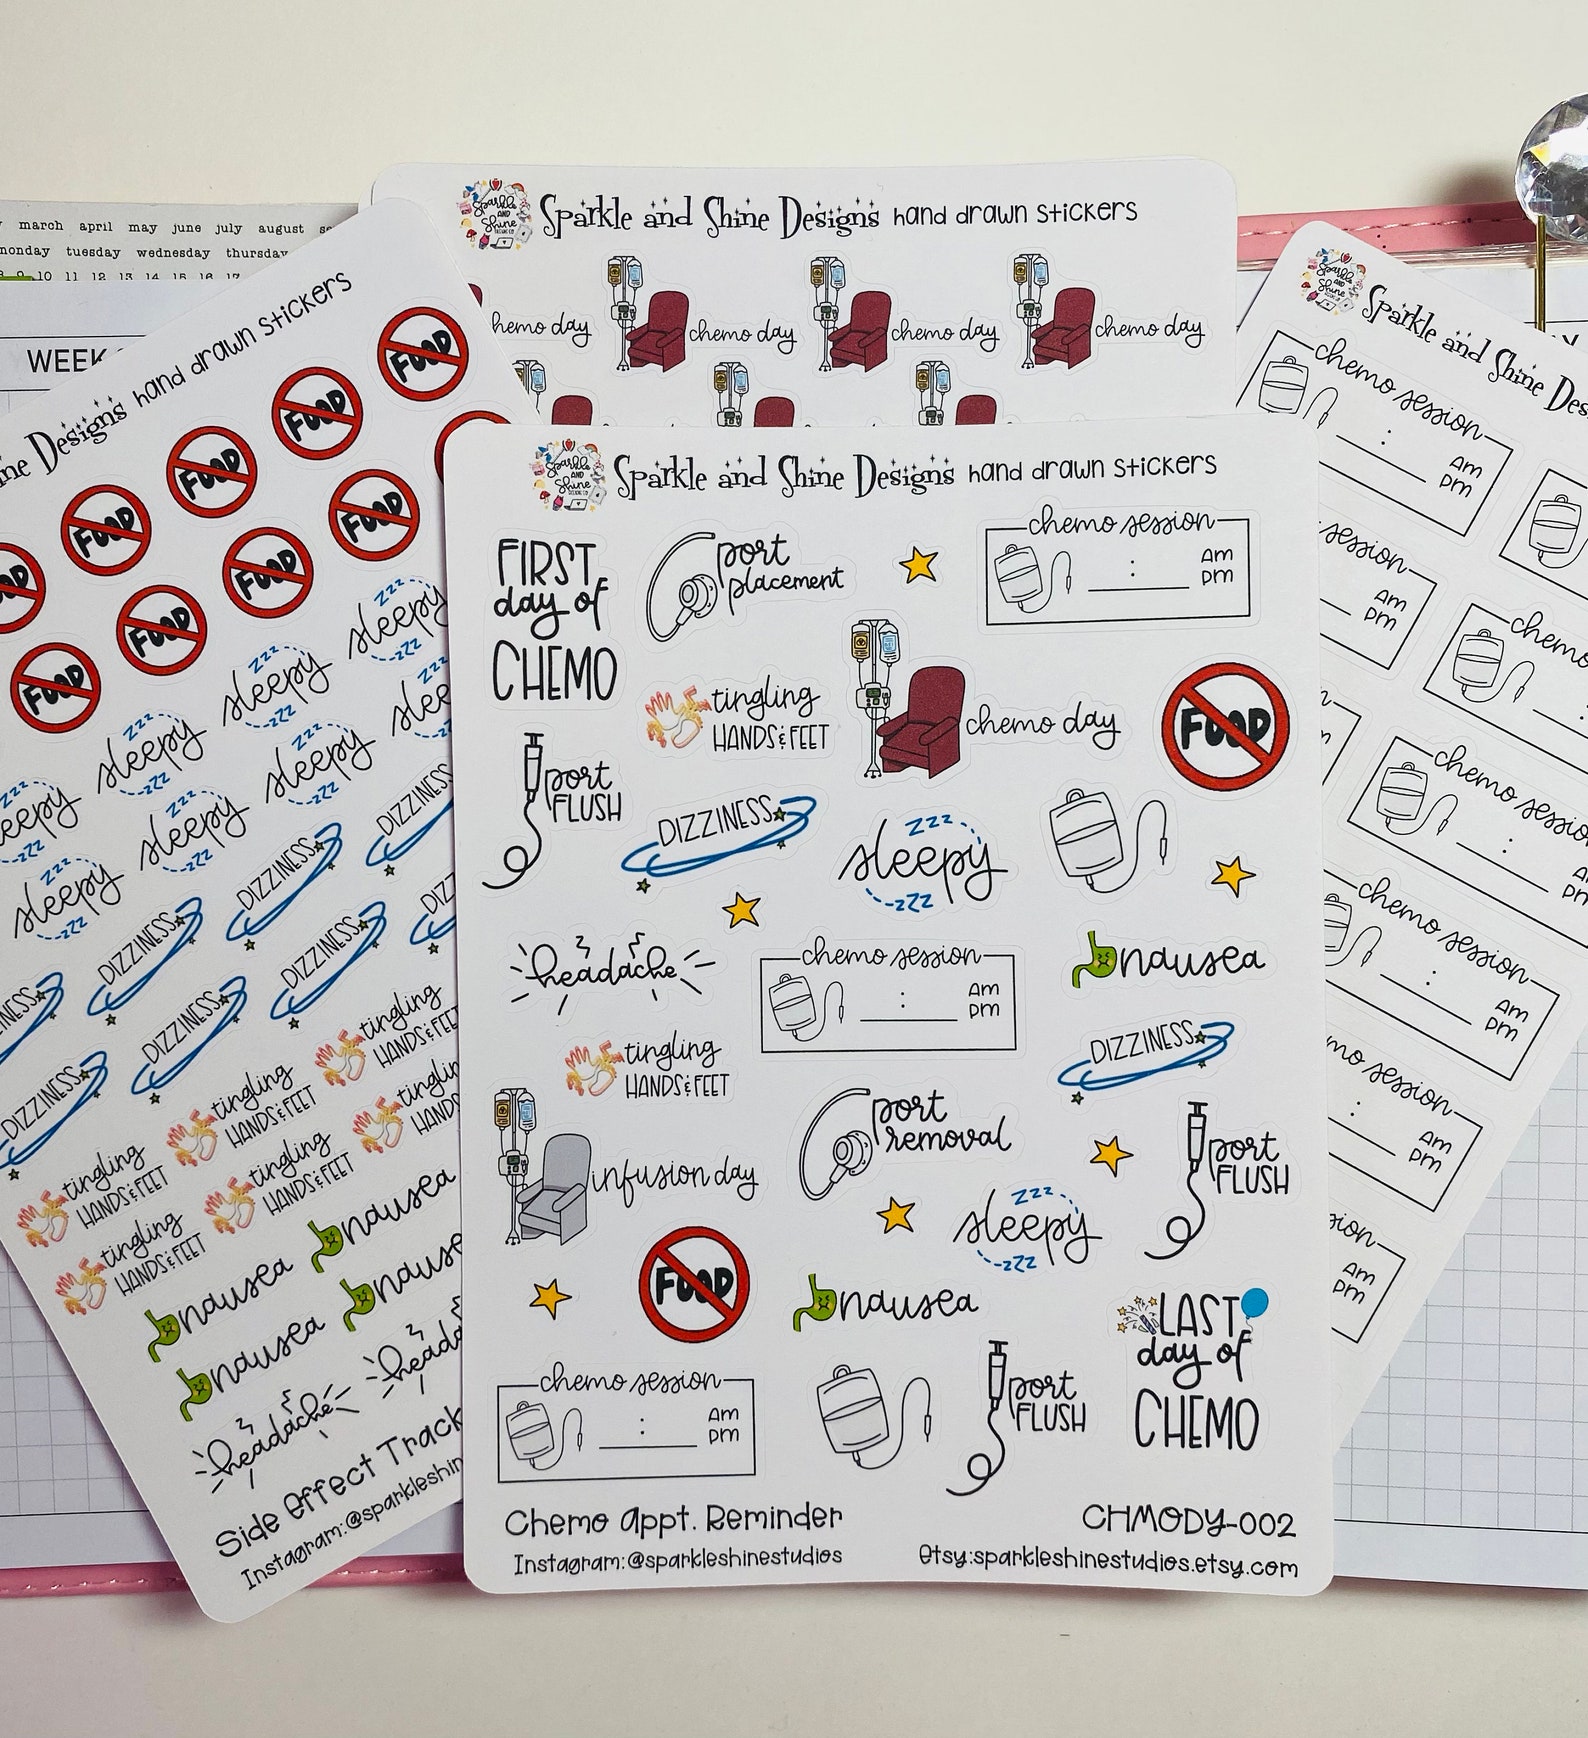 march april may june july august
monday tuesday wednesday thursday
10 11 12 13 14 15 16 17
WEEK
Sparkle and Shine Designs hand drawn stickers
chemo day
chemo day
chemo day
hemo day
Designs hand drawn stickers
FOOD
FOOD
FOOD
FOOD
FOOD
FOOD
FOOD
FOOD
sleepy
zzz
zzz
sleepy
zzz
zzz
sleepy
zzz
zzz
sleepy
zzz
zzz
sleepy
zzz
zzz
sleepy
zzz
zzz
DIZZINESS
DIZZINESS
DIZZINESS
DIZZINESS
DIZZINESS
DIZZINESS
tingling
HANDS & FEET
tingling
HANDS & FEET
tingling
HANDS & FEET
tingling
HANDS & FEET
tingling
HANDS & FEET
nausea
nausea
nausea
nausea
headache
Side Effect Track
Instagram:@sparkleshin
Sparkle and Shine Designs hand drawn stickers
FIRST
day of
CHEMO
port
placement
chemo session
:
Am
pm
tingling
HANDS & FEET
chemo day
FOOD
port
FLUSH
DIZZINESS
zzz
sleepy
zzz
headache
chemo session
:
Am
pm
nausea
tingling
HANDS & FEET
DIZZINESS
port
removal
infusion day
port
FLUSH
zzz
sleepy
zzz
FOOD
nausea
LAST
day of
CHEMO
chemo session
:
Am
pm
port
FLUSH
Chemo Appt. Reminder
CHMODY-002
Instagram:@sparkleshinestudios
Etsy:sparkleshinestudios.etsy.com
Sparkle and Shine Des
chemo session
:
Am
pm
session
Am
pm
chemo
chemo session
:
Am
pm
chemo session
:
Am
pm
chemo session
:
Am
pm
Am
pm